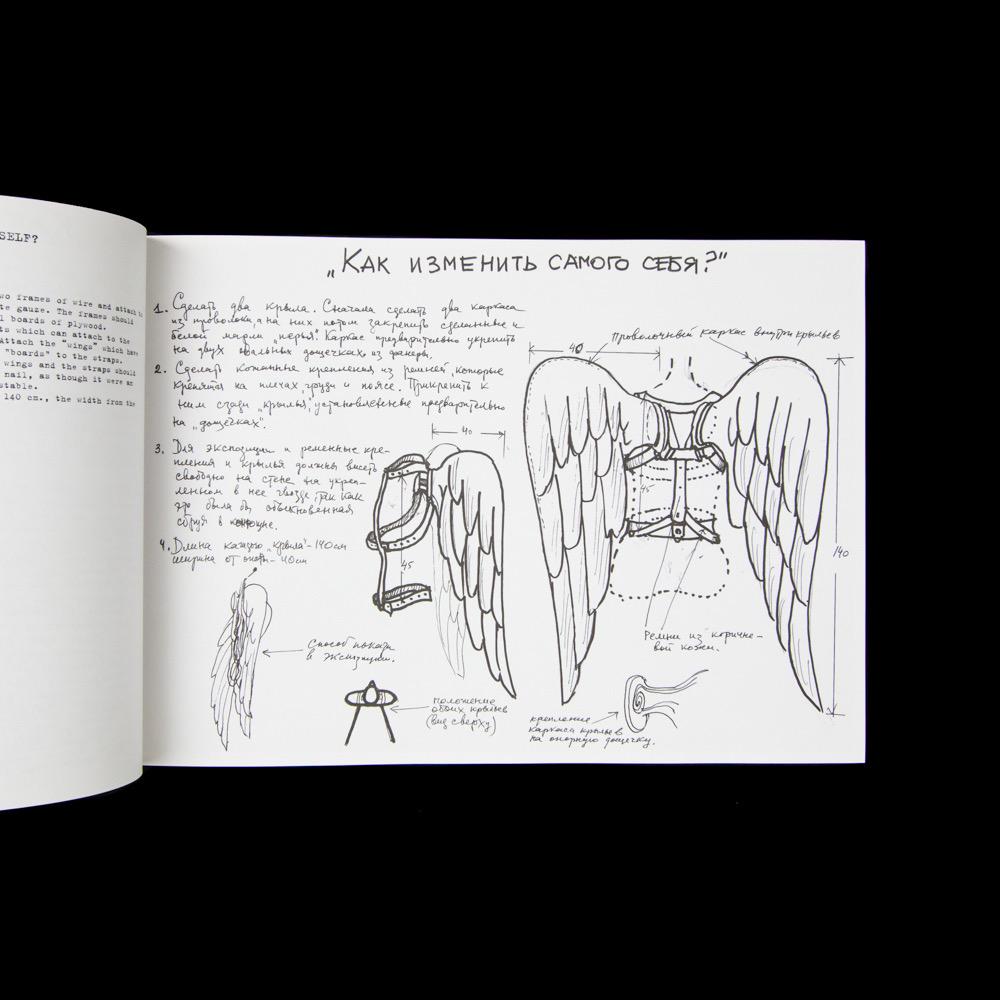 SELF?
wo frames of wire and attach to
te gauze. The frames should
l boards of plywood.
ts which can attach to the
Attach the "wings" which have
"boards" to the straps.
wings and the straps should
nail, as though it were an
stable.
140 cm., the width from the
„Как изменить самого себя?"
1. Сделать два крыла. Сначала сделать два каркаса
из проволоки, а на них потом закрепить сделанные из
белой марли „перья". Каркас предварительно укрепить
на двух овальных дощечках из фанеры.
2. Сделать кожанные крепления из ремней, которые
крепятся на плечах груди и поясе. Прикрепить к
ним сзади „крылья", установленные предварительно
на „дощечках".
3. Для экспозиции и ременные кре-
пления и крылья должны висеть
свободно на стене на укреп-
ленном в нее гвозде, так как
это была бы обыкновенная
сбруя в конюшне.
4. Длина каждого „крыла" - 140 см
ширина от - 40 см
40
45
Способ показа
в экспозиции.
положение
обоих крыльев
(вид сверху)
Проволочный каркас внутри крыльев
40
45
140
Ремни из коричне-
вой кожи.
крепление
каркаса крыльев
на опорную дощечку.